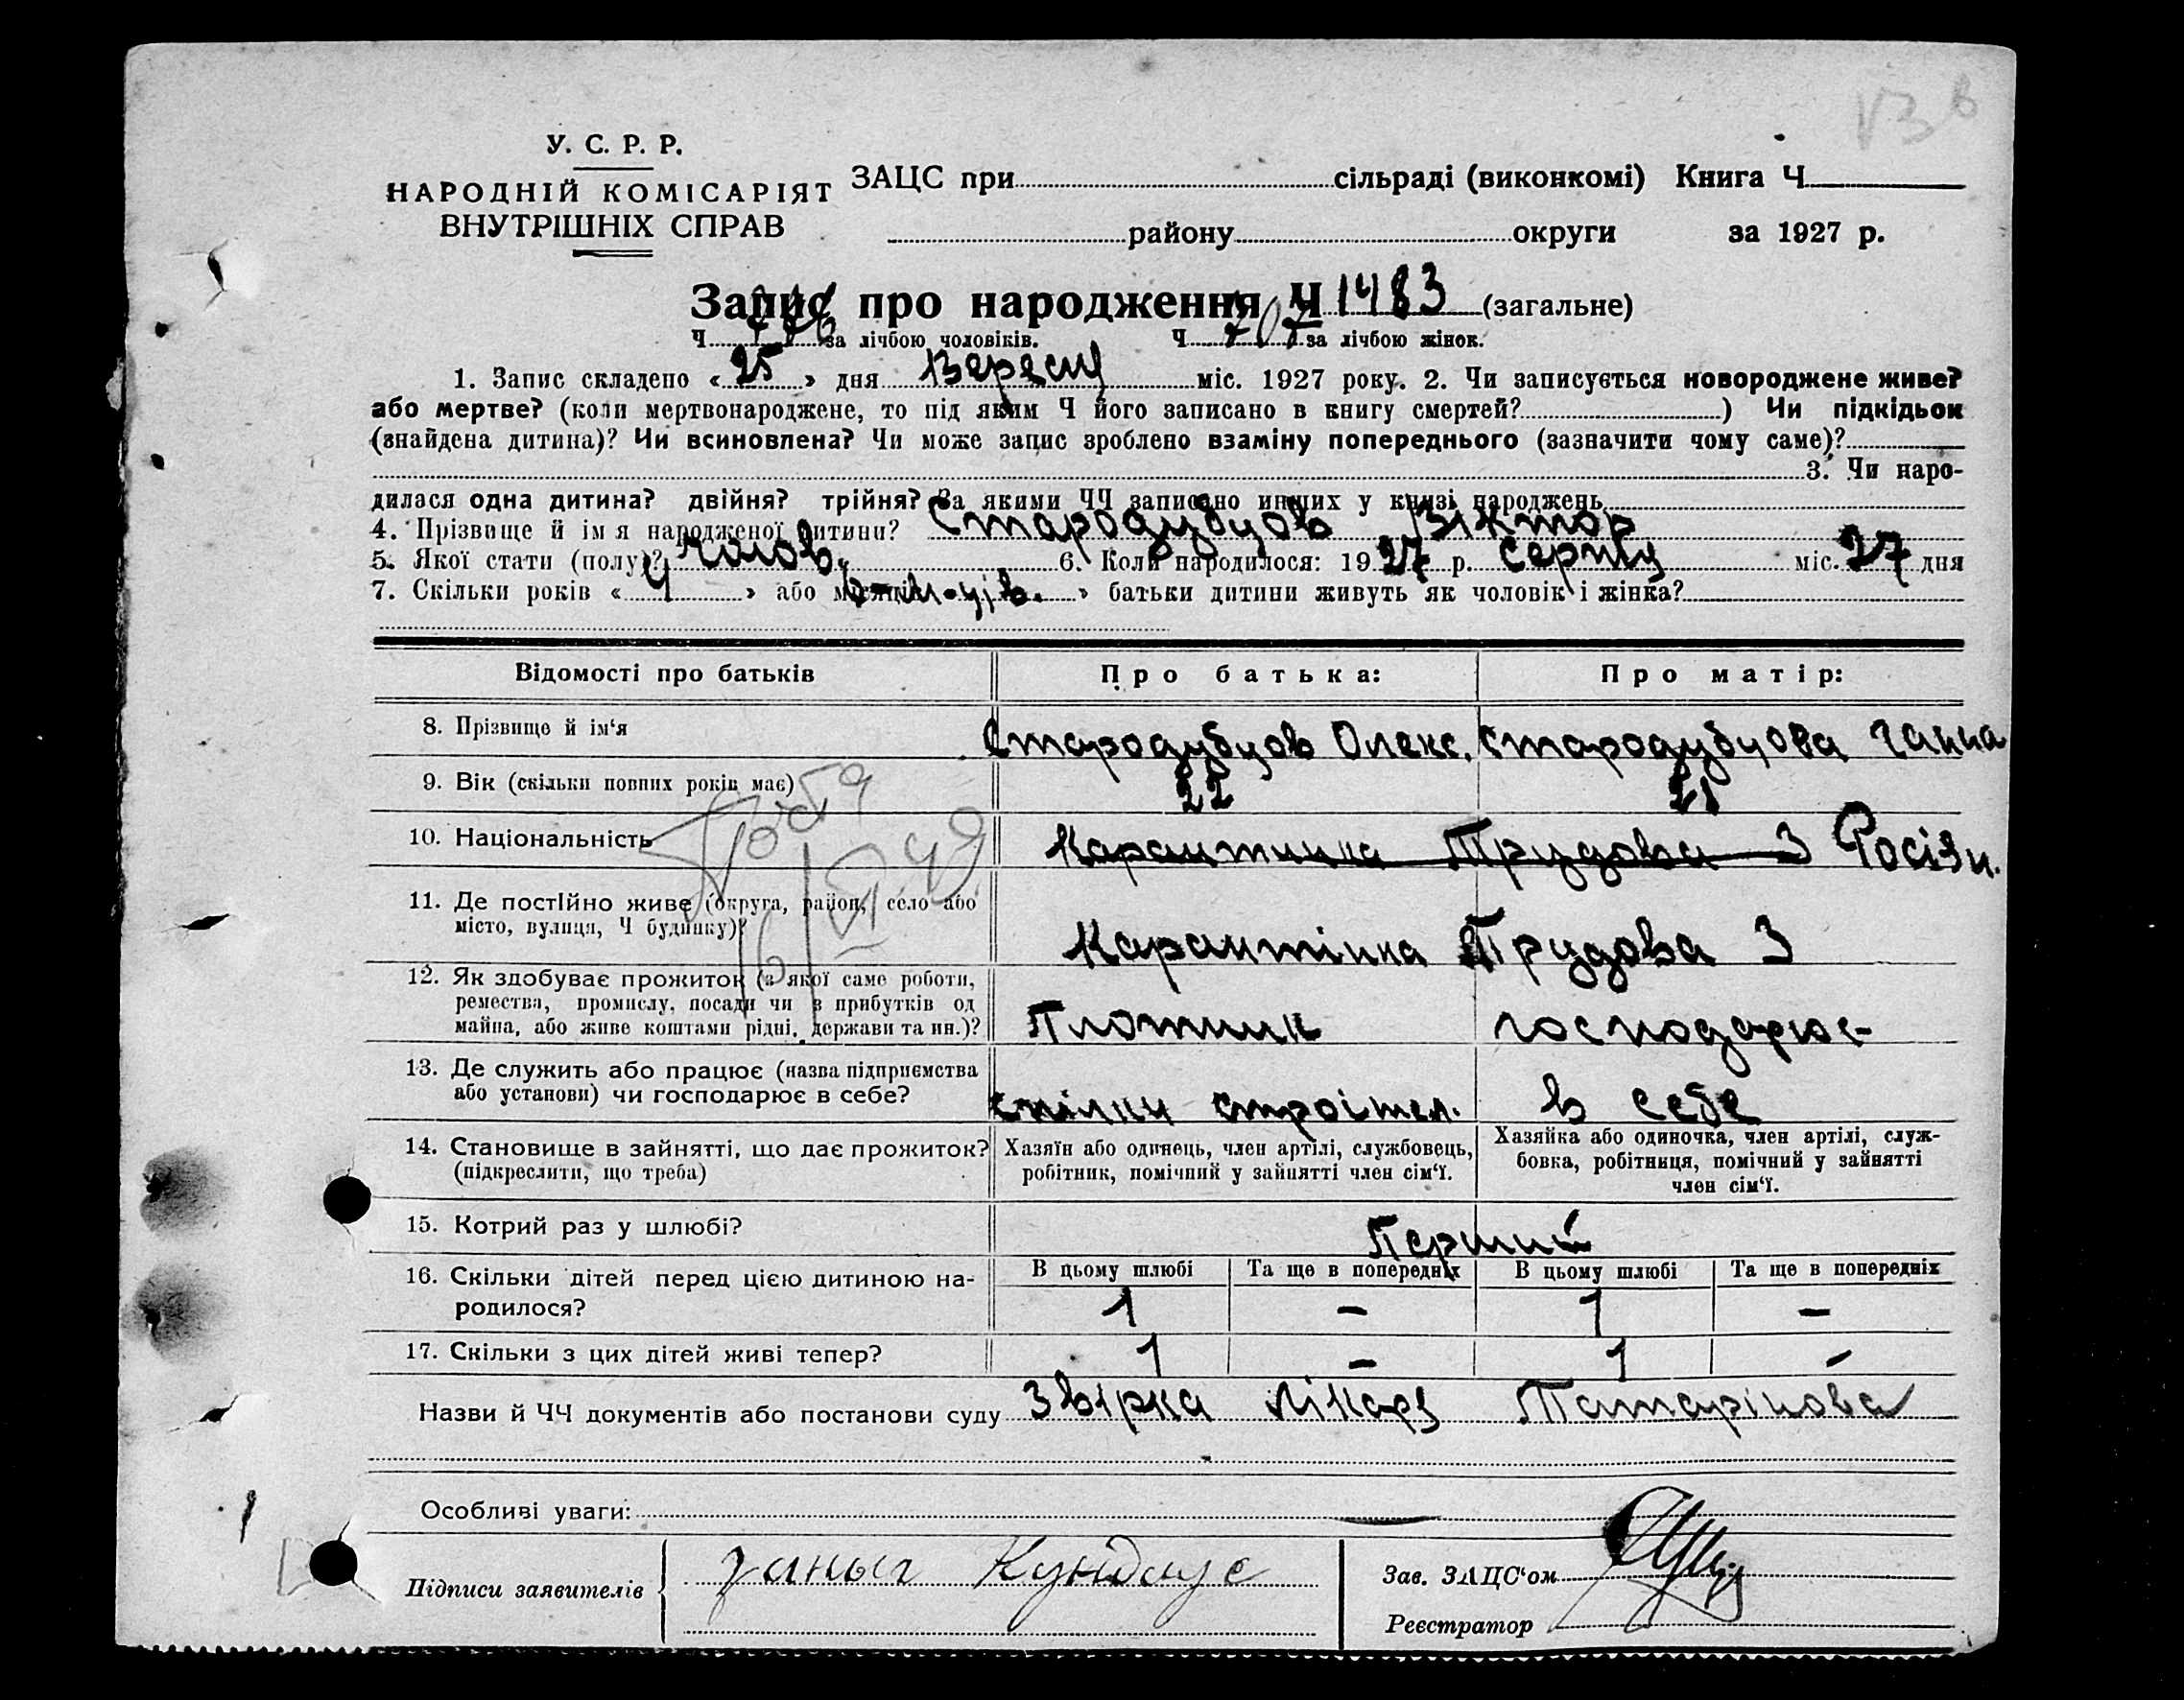 У. С. Р. Р.
НАРОДНІЙ КОМІСАРІЯТ
ВНУТРІШНІХ СПРАВ
ЗАЦС при сільраді (виконкомі) Книга Ч
району округи за 1927 р.
Запис про народження Ч 1483 (загальне)
Ч за лічбою чоловіків. Ч 707 за лічбою жінок.
1. Запис складено « 25 » дня Вересня міс. 1927 року. 2. Чи записується новороджене живе?
або мертве? (коли мертвонароджене, то під яким Ч його записано в книгу смертей? ) Чи підкідьок
(знайдена дитина)? Чи всиновлена? Чи може запис зроблено взаміну попереднього (зазначити чому саме)?
3. Чи наро-
дилася одна дитина? двійня? трійня? За якими ЧЧ записано инших у книзі народжень
4. Прізвище й ім я народженої дитини? Стародубцов Віктор
5. Якої стати (полу)? чолов. 6. Коли народилося: 19 27 р. серпня міс. 27 дня
7. Скільки років « 4 » або місяців » батьки дитини живуть як чоловік і жінка?
Відомості про батьків Про батька: Про матір:
8. Прізвище й ім‘я Стародубцов Олекс. Стародубцова Ганна
9. Вік (скільки повних років має) 22 21
10. Національність Карантинка Трудова 3 Росіян.
11. Де постійно живе (округа, район, село або
місто, вулиця, Ч будинку)? Карантінка Трудова 3
12. Як здобуває прожиток (з якої саме роботи,
ремества, промислу, посади чи з прибутків од
майна, або живе коштами рідні, держави та ин.)? Плотник господарює
13. Де служить або працює (назва підприємства
або установи) чи господарює в себе? спілки строітел. в себе
14. Становище в зайнятті, що дає прожиток?
(підкреслити, що треба)
Хазяїн або одинець, член артілі, службовець,
робітник, помічний у зайнятті член сім‘ї.
Хазяйка або одиночка, член артілі, служ-
бовка, робітниця, помічний у зайнятті
член сім‘ї.
15. Котрий раз у шлюбі? Перший
16. Скільки дітей перед цією дитиною на-
родилося?
В цьому шлюбі Та ще в попередніх В цьому шлюбі Та ще в попередніх
1 – 1 –
17. Скільки з цих дітей живі тепер? 1 – 1 –
Назви й ЧЧ документів або постанови суду Звірка лікаря Татарінова
Особливі уваги:
Підписи заявителів
Зав. ЗАЦС‘ом
Реєстратор